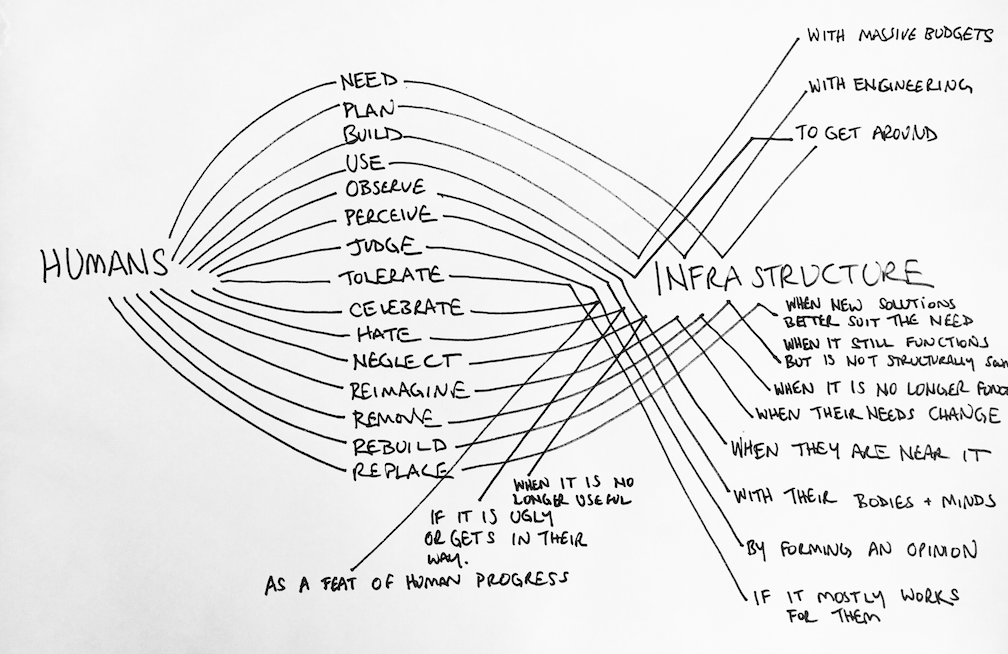 WITH MASSIVE BUDGETS
NEED
WITH ENGINEERING
PLAN
BUILD
TO GET AROUND
USE
OBSERVE
PERCEIVE
JUDGE
HUMANS
TOLERATE
INFRASTRUCTURE
CELEBRATE
HATE
NEGLECT
REIMAGINE
REMOVE
REBUILD
REPLACE
WHEN NEW SOLUTIONS
BETTER SUIT THE NEED
WHEN IT STILL FUNCTIONS
BUT IS NOT STRUCTURALLY
WHEN IT IS NO LONGER
WHEN THEIR NEEDS CHANGE
WHEN THEY ARE NEAR IT
WITH THEIR BODIES + MINDS
BY FORMING AN OPINION
IF IT MOSTLY WORKS
FOR THEM
WHEN IT IS NO
LONGER USEFUL
IF IT IS UGLY
OR GETS IN THEIR
WAY.
AS A FEAT OF HUMAN PROGRESS